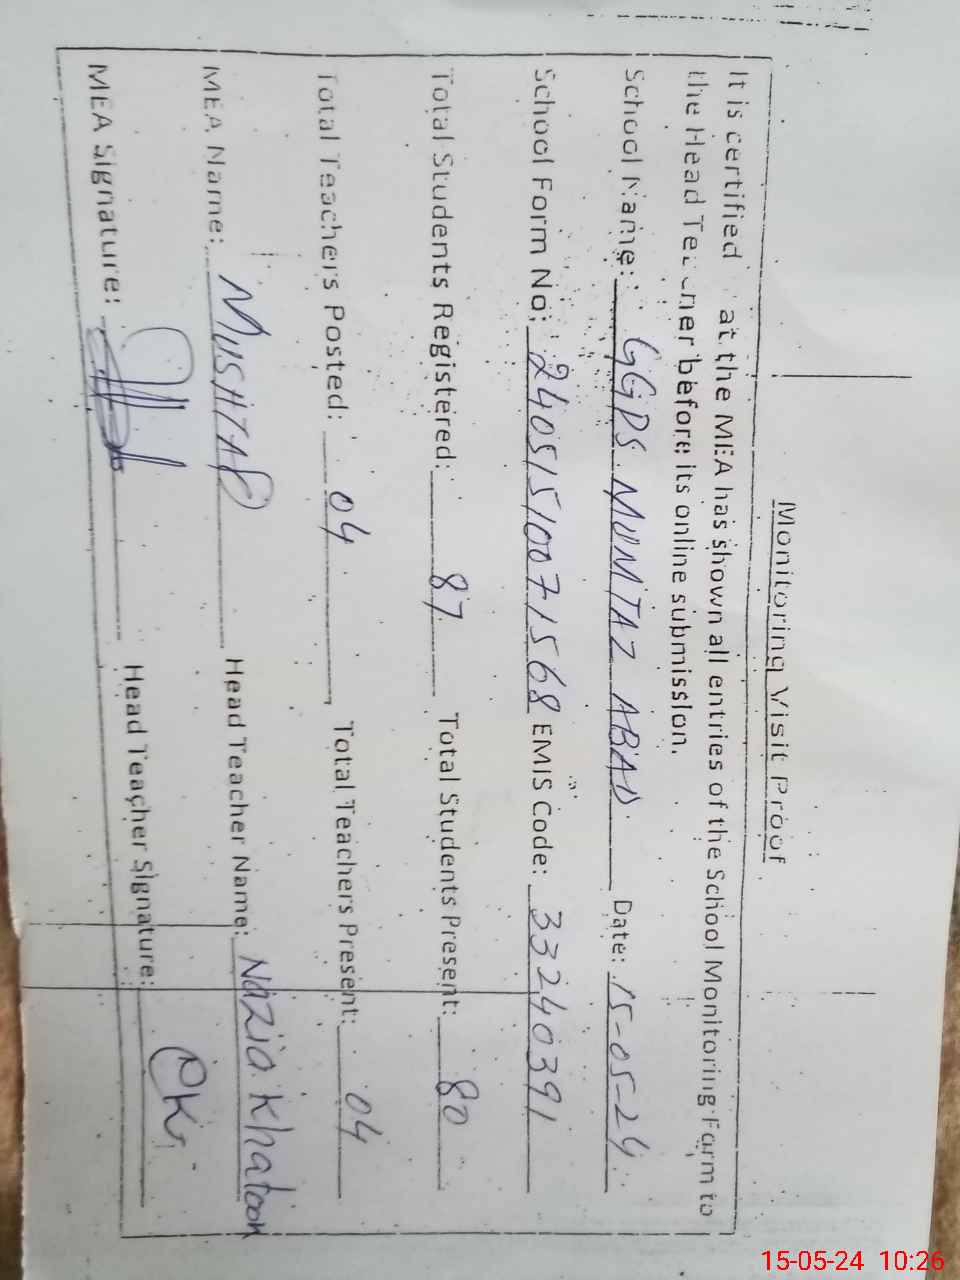 Monitoring Visit Proof
It is certified at the MEA has shown all entries of the School Monitoring Form to
the Head Teacher before its online submission.
School Name: GGPS MUMTAZ ABAD Date: 15-05-24
School Form No: 2405151007 1568 EMIS Code: 33240391
Total Students Registered: 87 Total Students Present: 80
Total Teachers Posted: 04, Total Teachers Present: 04
MEA Name: MUSHTAQ Head Teacher Name: Nazia Khatoon
MEA Signature: Head Teacher Signature:
15-05-24 10:26